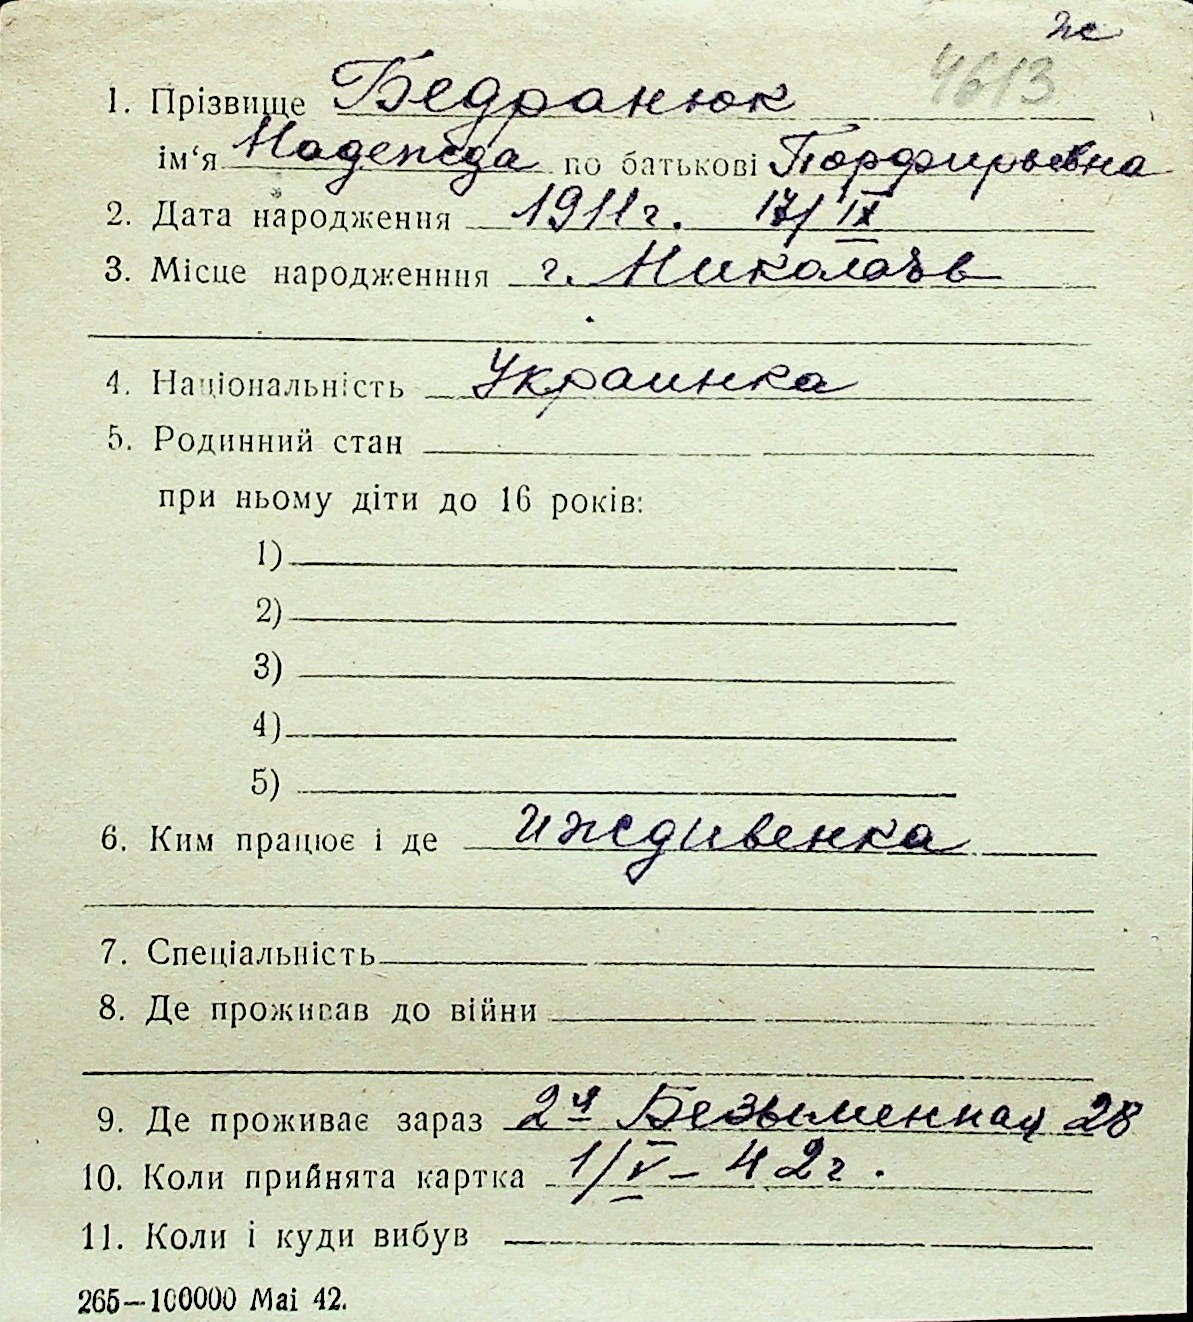 ж
4613
1. Прізвище Бедранюк
ім‘я Надежда по батькові Порфирьевна
2. Дата народження 1911 г. 17/IX
3. Місце народженння г. Николаев
4. Національність Украинка
5. Родинний стан
при ньому діти до 16 років:
1)
2)
3)
4)
5)
6. Ким працює і де иждивенка
7. Спеціальність
8. Де проживав до війни
9. Де проживає зараз 2я Безыменная 28
10. Коли прийнята картка 1/V – 42 г.
11. Коли і куди вибув
265—100000 Mai 42.